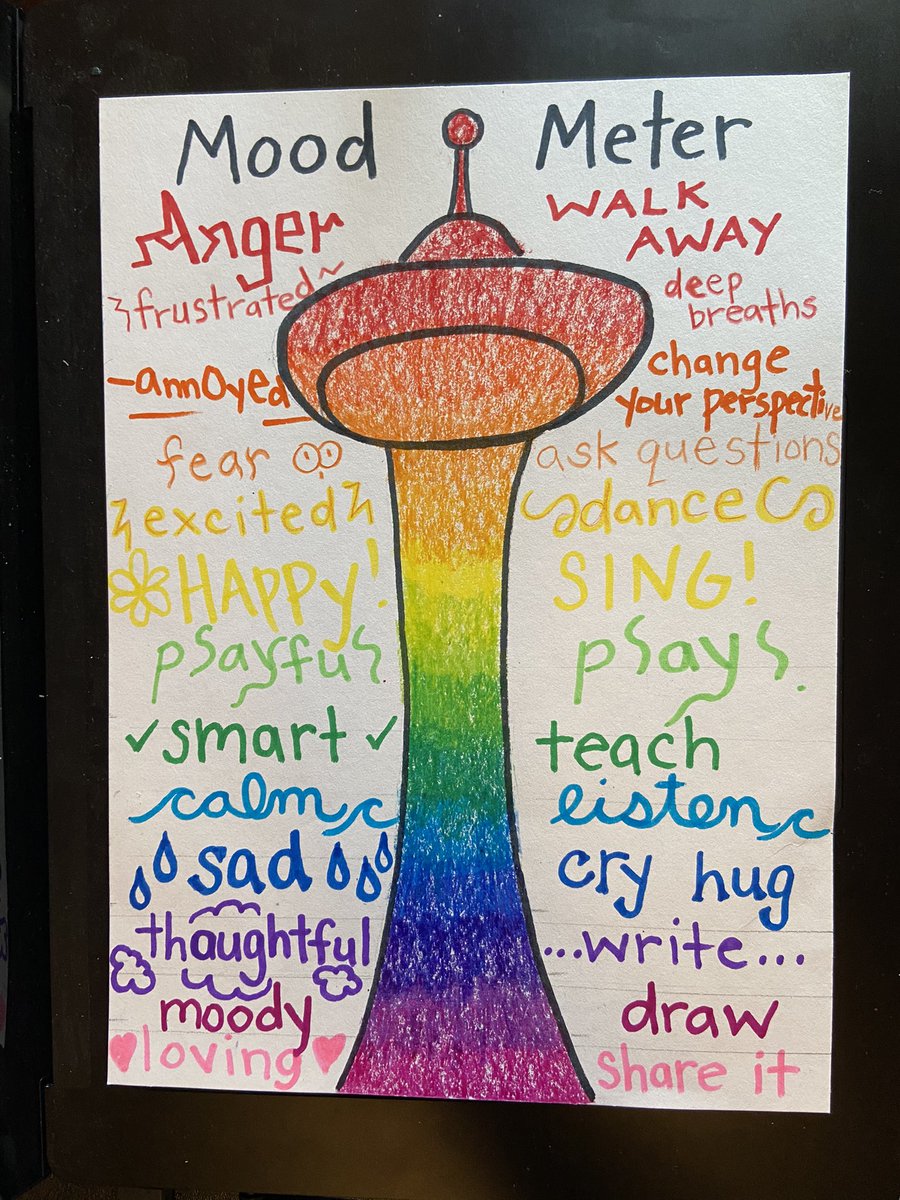 Mood Meter
Anger
WALK AWAY
frustrated
deep breaths
annoyed
change your perspective
fear
ask questions
excited
dance
HAPPY!
SING!
playful
play.
smart
teach
calm
listen
sad
cry hug
thoughtful
...write...
moody
draw
loving
share it